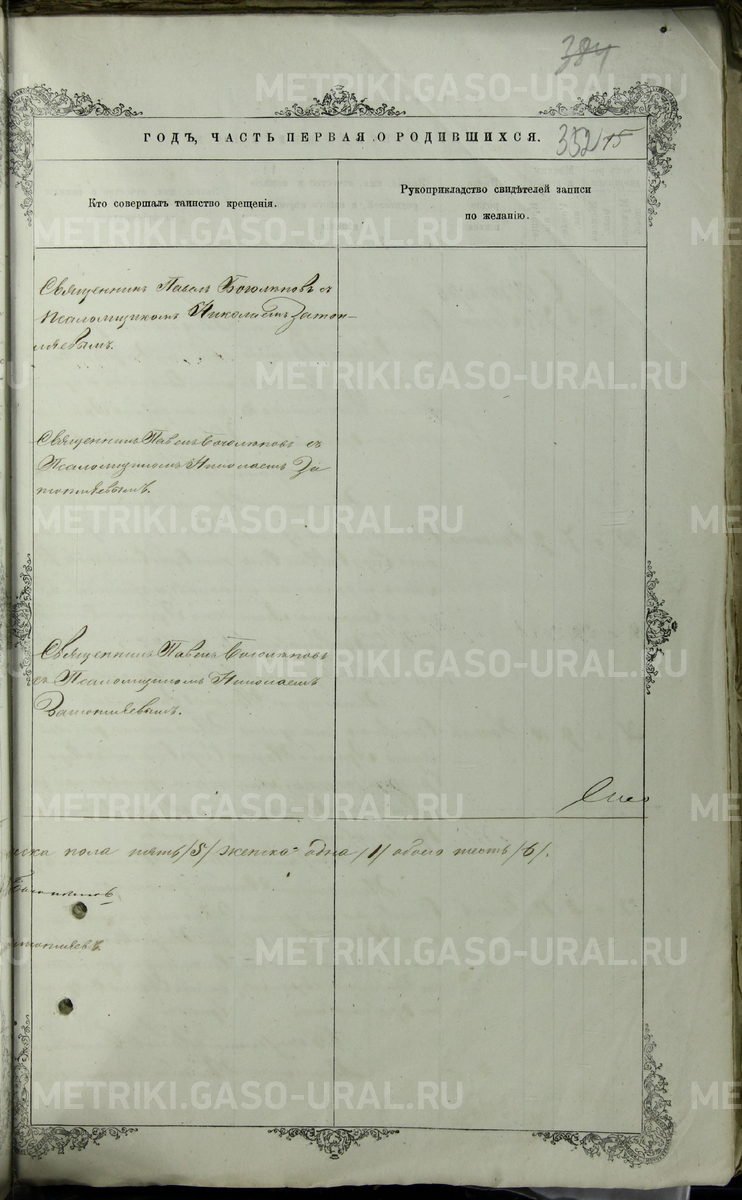 384
METRIKI.GASO-URAL.RU
ГОДЪ, ЧАСТЬ ПЕРВАЯ О РОДИВШИХСЯ.
352 15
Кто совершалъ таинство крещенія.
Рукоприкладство свидѣтелей записи
по желанію.
Священникъ Павелъ Боголѣповъ съ
Псаломщикомъ Николаемъ Затоп-
ляевымъ.
METRIKI.GASO-URAL.RU METRIKI.GASO-URAL.RU
Священникъ Павелъ Боголѣповъ съ
Псаломщикомъ Николаемъ За
топляевымъ.
METRIKI.GASO-URAL.RU
Священникъ Павелъ Боголѣповъ
съ Псаломщикомъ Николаемъ
Затопляевымъ.
METRIKI.GASO-URAL.RU METRIKI.GASO-URAL.RU
METRIKI.GASO-URAL.RU METRIKI.GASO-URAL.RU
пола пять /5/ женска одна /1/ обоего шесть /6/.
METRIKI.GASO-URAL.RU
METRIKI.GASO-URAL.RU METRIKI.GASO-URAL.RU